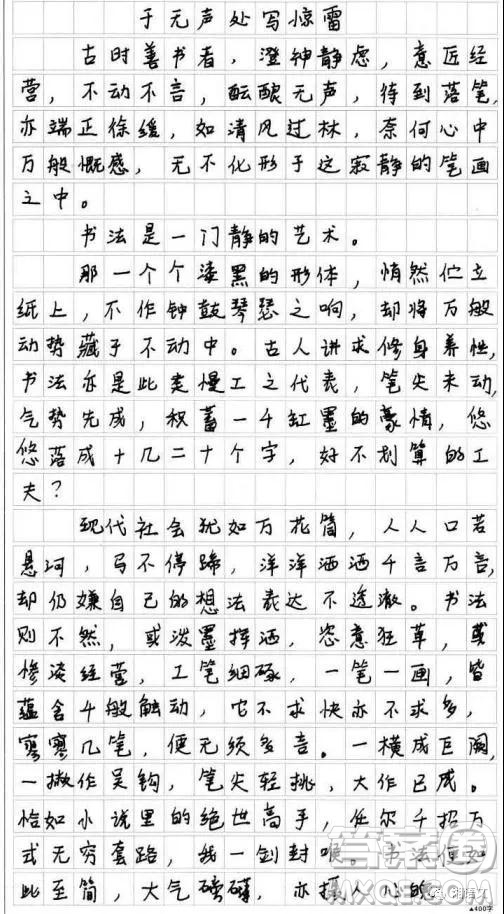 于无声处写惊雷
古时善书者，澄神静虑，意匠经
营，不动不言，酝酿无声，待到落笔，
亦端正徐缓，如清风过林，奈何心中
万般慨感，无不化形于这寂静的笔画
之中。
书法是一门静的艺术。
那一个个漆黑的形体，悄然伫立
纸上，不作钟鼓琴瑟之响，却将万般
动势藏于不动中。古人讲求修身养性，
书法亦是此类慢工之代表，笔尖未动，
气势先成，积蓄一千缸墨的豪情，悠
悠落成十几二十个字，好不划算的工
夫？
现代社会犹如万花筒，人人口若
悬河，马不停蹄，洋洋洒洒千言万言，
却仍嫌自己的想法表达不透澈。书法
则不然，或泼墨挥洒，恣意狂草，或
惨淡经营，工笔细琢，一笔一画，皆
蕴含千般触动，它不求快亦不求多，
寥寥几笔，便无须多言。一横成巨阙，
一撇作吴钩，笔尖轻挑，大作已成。
恰如小说里的绝世高手，任尔千招万
式无穷套路，我一剑封喉。书法便如
此至简，大气磅礴，亦摄人心的
▲400字